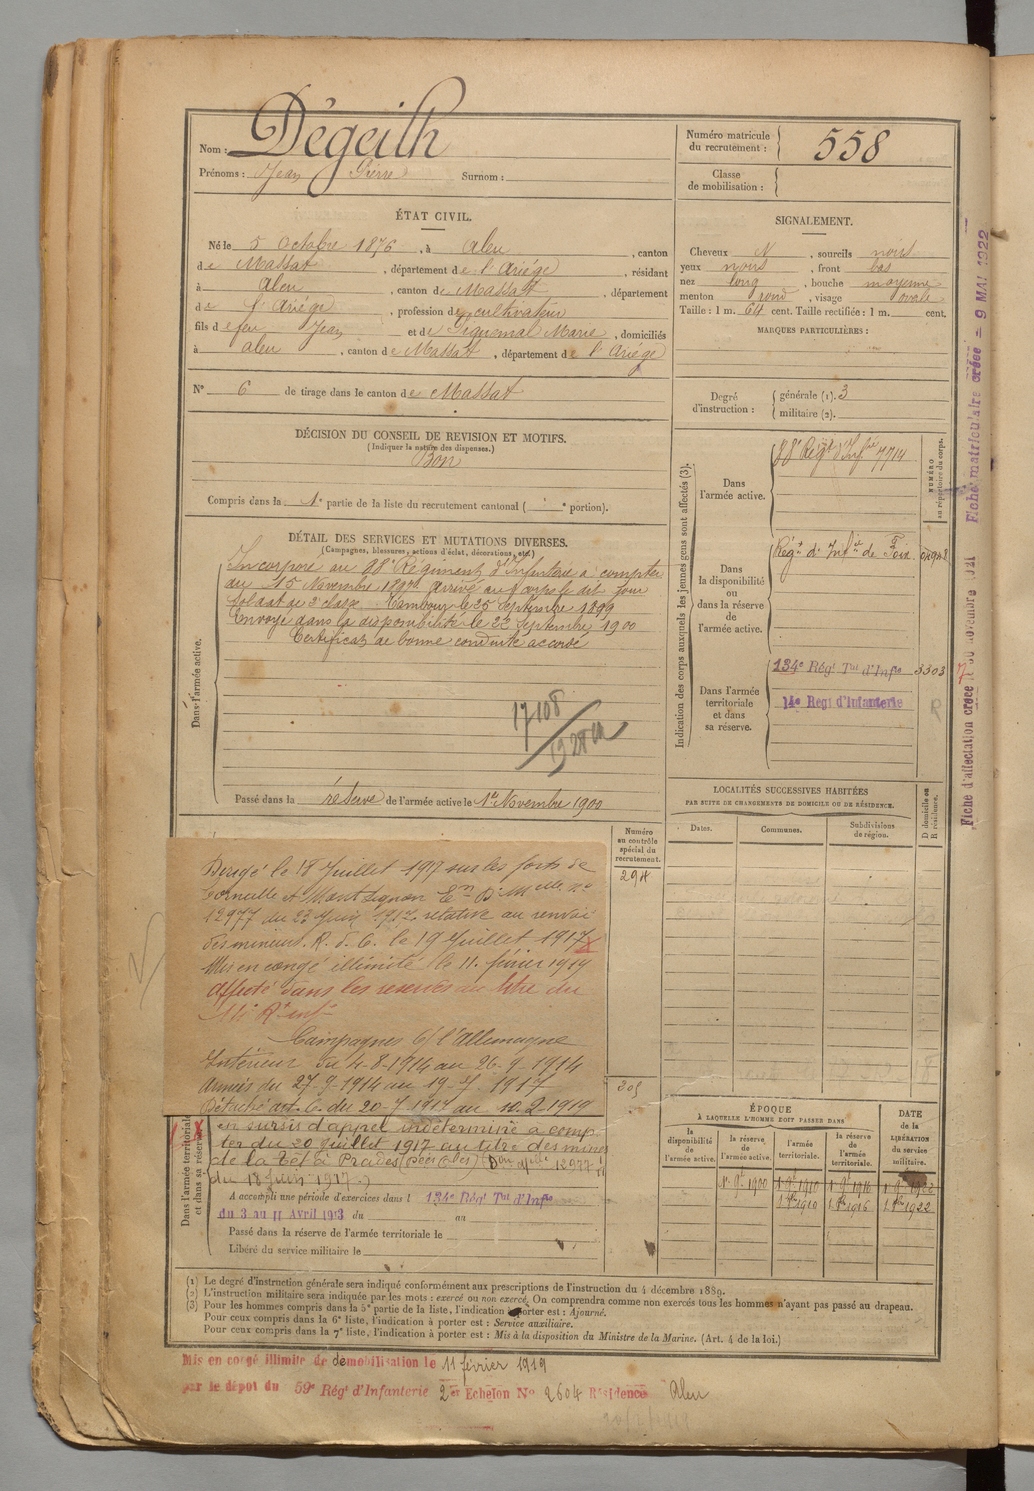 Nom : Dégeilh
Prénoms : Jean Pierre Surnom :
Numéro matricule du recrutement : 558
Classe de mobilisation :
ÉTAT CIVIL.
Né le 5 octobre 1876, à Aleu, canton
de Massat, département de l'Ariége, résidant
à Aleu, canton de Massat, département
de l'Ariége, profession de cultivateur
fils de feu Jean et de Piquemal Marie, domiciliés
à Aleu, canton de Massat, département de l'Ariége
N° 6 de tirage dans le canton de Massat
SIGNALEMENT.
Cheveux N, sourcils noirs
yeux noirs, front bas
nez long, bouche moyenne
menton rond, visage ovale
Taille : 1 m. 64 cent. Taille rectifiée : 1 m. cent.
MARQUES PARTICULIÈRES :
Degré d'instruction : générale (1). 3
militaire (2).
DÉCISION DU CONSEIL DE REVISION ET MOTIFS.
(Indiquer la nature des dispenses.)
Bon
Compris dans la 1e partie de la liste du recrutement cantonal ( e portion).
DÉTAIL DES SERVICES ET MUTATIONS DIVERSES.
(Campagnes, blessures, actions d'éclat, décorations, etc.)
Dans l'armée active.
Incorporé au 88e Régiment d'Infanterie à compter
du 15 Novembre 1897 arrivé au corps le dit jour
soldat de 2e classe. Tambour le 25 Septembre 1899
Envoyé dans la disponibilité le 22 Septembre 1900
Certificat de bonne conduite accordé
17108
Passé dans la réserve de l'armée active le 1er Novembre 1900
Indication des corps auxquels les jeunes gens sont affectés (3).
NUMÉRO au répertoire du corps.
Dans l'armée active.
88e Régt d'Infie 7714
Dans la disponibilité ou dans la réserve de l'armée active.
Régt d'Infie de Foix
Dans l'armée territoriale et dans sa réserve.
134e Régt Tal d'Infie 3303
14e Régt d'Infanterie
R
Fiche matriculaire créée = 9 MAI 1922
Fiche d'affectation créée novembre 1921
LOCALITÉS SUCCESSIVES HABITÉES
PAR SUITE DE CHANGEMENTS DE DOMICILE OU DE RÉSIDENCE.
Dates. Communes. Subdivisions de région. D domicile ou R résidence.
Numéro au contrôle spécial du recrutement.
294
305
Dirigé le 18 Juillet 1917 sur les forts de
Cornille et Montsignon En D. Melle no
12977 du 23 Juin 1917 relative au renvoi
des mineurs. R. d. C. le 19 Juillet 1917 X
Mis en congé illimité le 11 février 1919
Affecté dans les reserves au titre du
14e Rt inf
Campagnes c/ l'Allemagne
Intérieur du 4-8-1914 au 26-9-1914
Armées du 27-9-1914 au 19-7-1917
Détaché art. 6. du 20-7-1917 au 10-2-1919
Dans l'armée territoriale et dans sa réserve.
X en sursis d'appel indéterminé à comp-
ter du 20 juillet 1917 au titre des mines
de la Têt à Prades (Pées Oles) (Don Melle 12977
du 18 Juin 1917.)
A accompli une période d'exercices dans l 134e Régt Tal d'Infie
du 3 au 11 Avril 1913 du au
Passé dans la réserve de l'armée territoriale le
Libéré du service militaire le
ÉPOQUE
À LAQUELLE L'HOMME DOIT PASSER DANS
la disponibilité de l'armée active. la réserve de l'armée active. l'armée territoriale. la réserve de l'armée territoriale. DATE de la LIBÉRATION du service militaire.
1er 9bre 1900 1er 9bre 1910 1er 9bre 1916
1er 8bre 1910 1er 8bre 1916 1er 8bre 1922
(1) Le degré d'instruction générale sera indiqué conformément aux prescriptions de l'instruction du 4 décembre 1889.
(2) L'instruction militaire sera indiquée par les mots : exercé ou non exercé. On comprendra comme non exercés tous les hommes n'ayant pas passé au drapeau.
(3) Pour les hommes compris dans la 5e partie de la liste, l'indication à porter est : Ajourné.
Pour ceux compris dans la 6e liste, l'indication à porter est : Service auxiliaire.
Pour ceux compris dans la 7e liste, l'indication à porter est : Mis à la disposition du Ministre de la Marine. (Art. 4 de la loi.)
Mis en congé illimité de démobilisation le 11 février 1919
par le dépôt du 59e Régt d'Infanterie 2e Echelon No 2604 Résidence Aleu